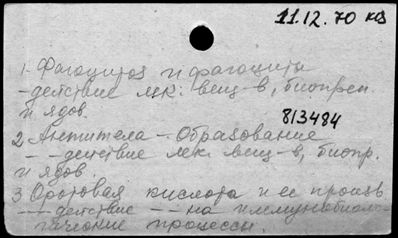 11.12.70 кв
1. Фагоцитоз и фагоциты
- действие лек. вещ-в, биопреп.
и ядов.
813484
2. Антитела - Образование
- - действие лек. вещ-в, биопр.
и ядов.
3 Оротовая кислота и ее произв
- - действие - - на иммунобиоло-
гические процессы.